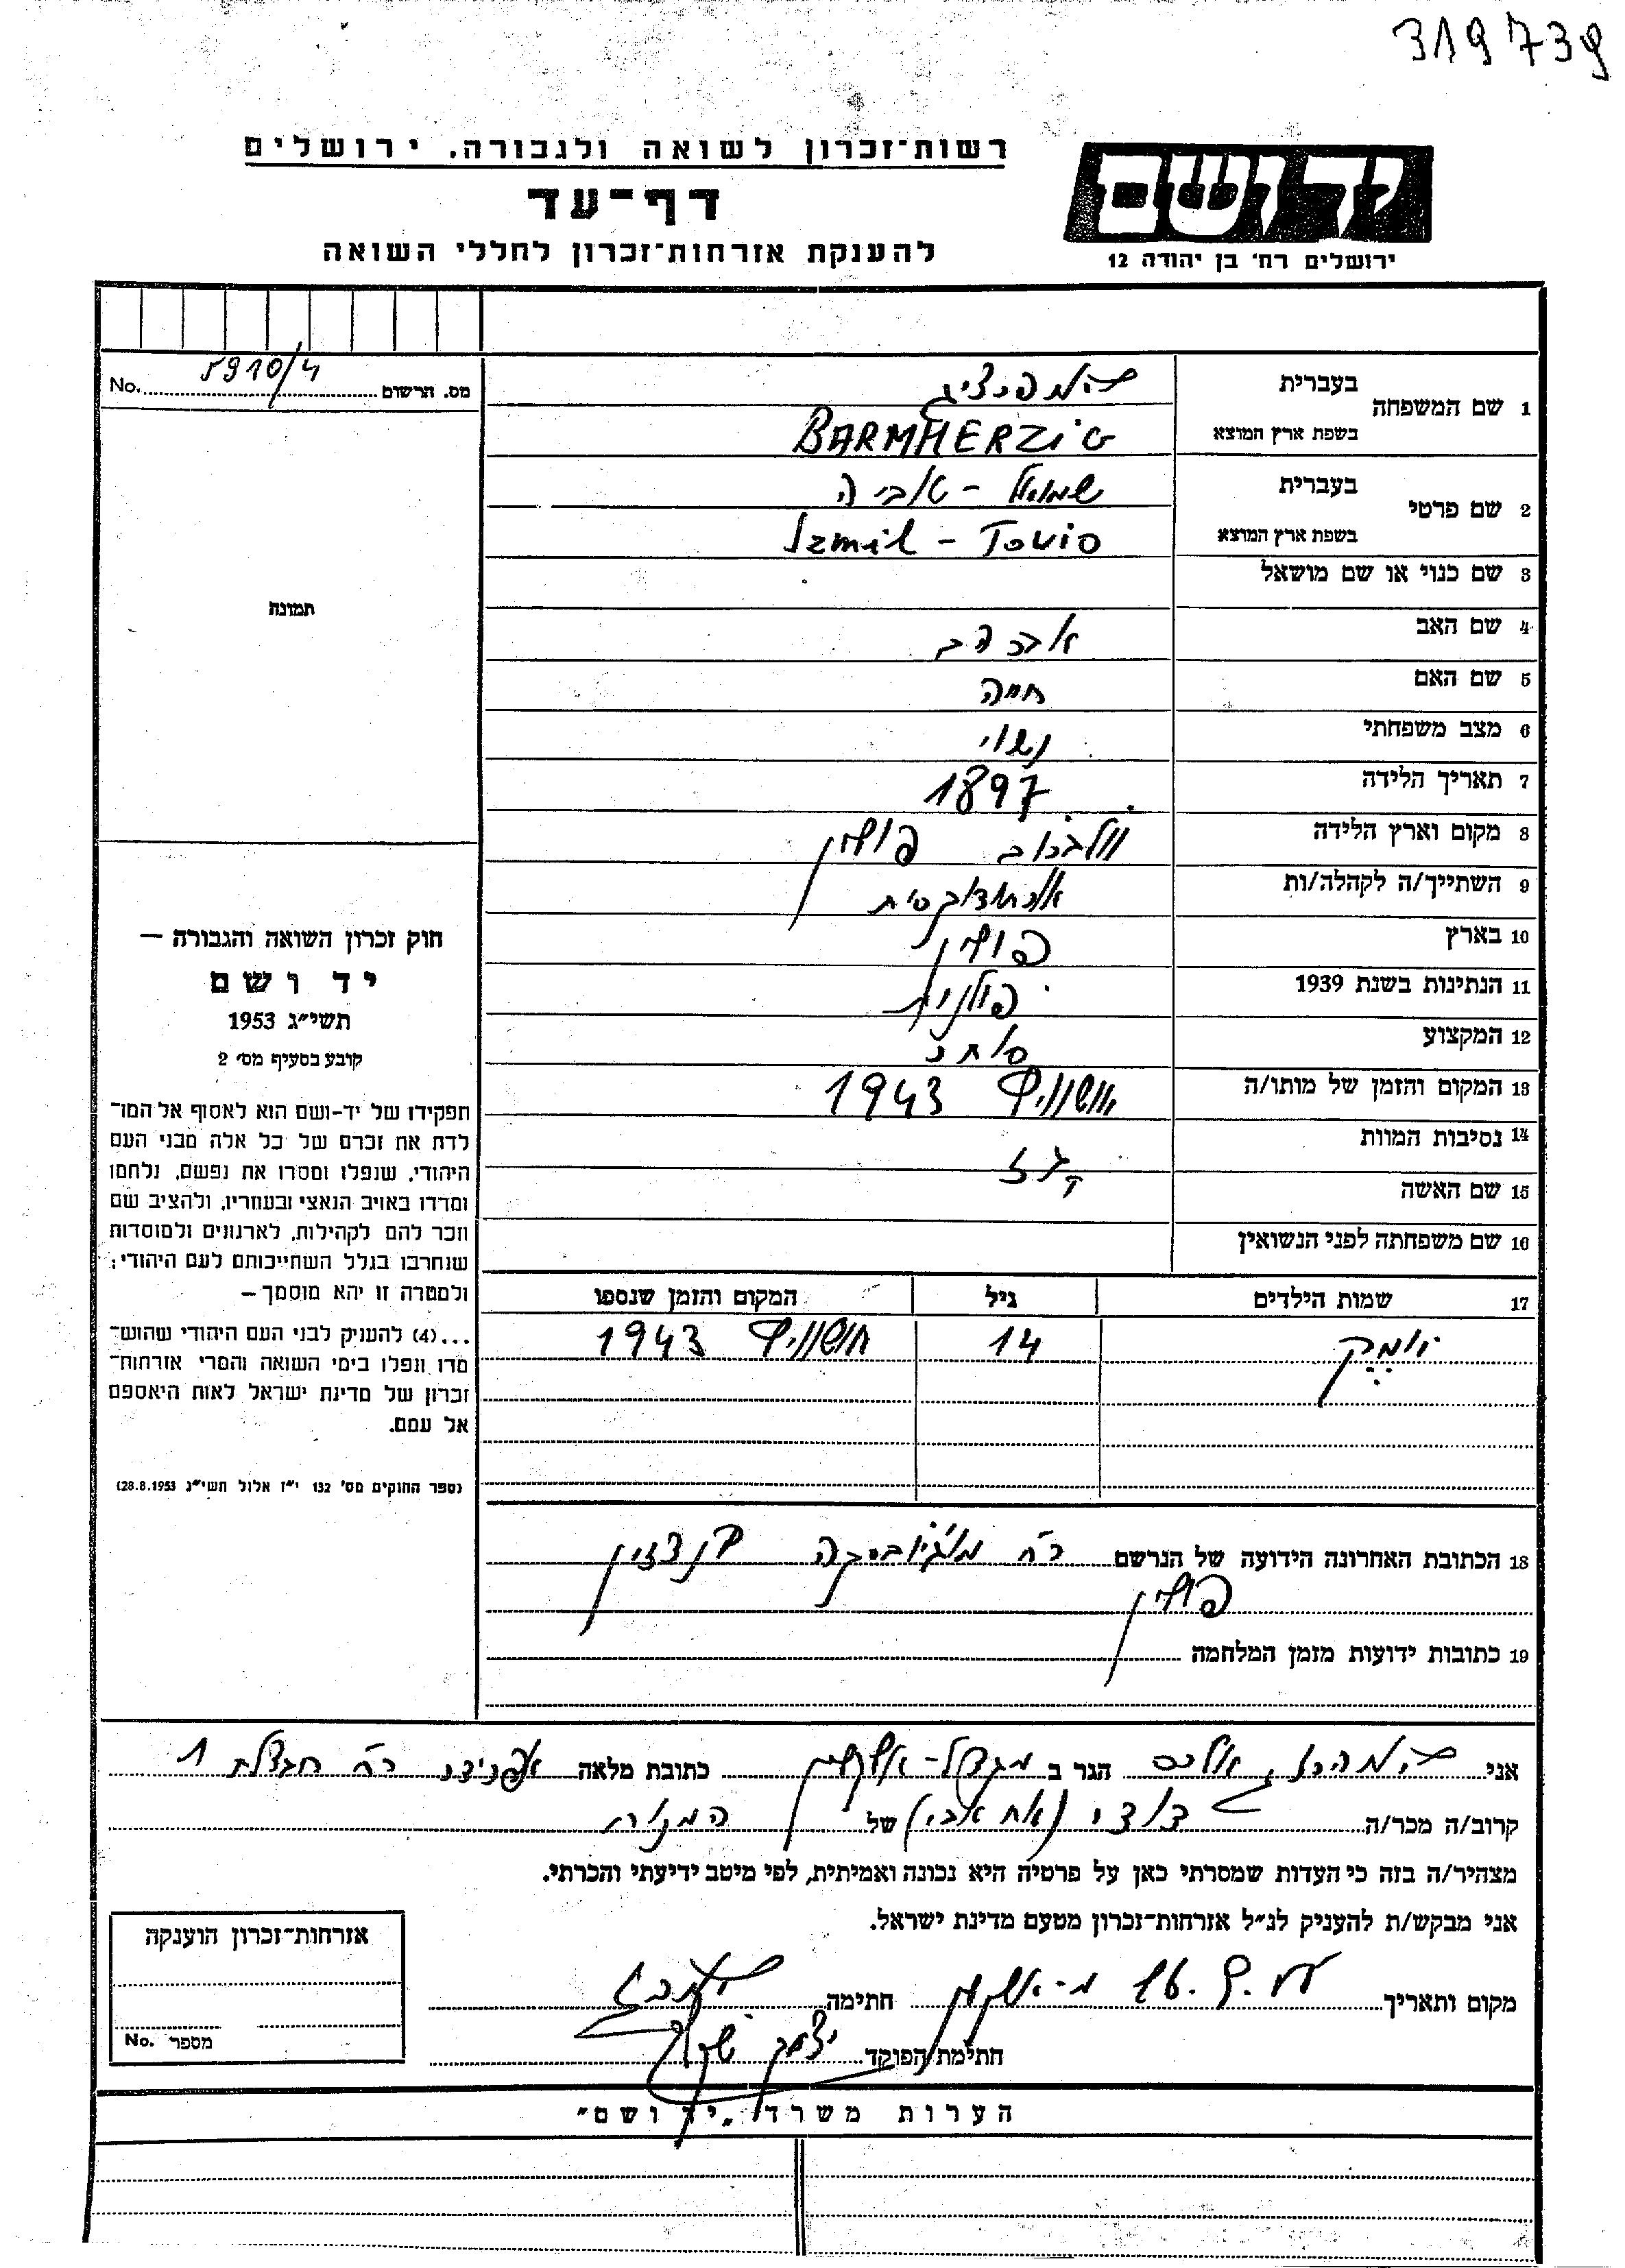 319739
רשות־זכרון לשואה ולגבורה, ירושלים
דף־עד
להענקת אזרחות־זכרון לחללי השואה
יד ושם
ירושלים רח׳ בן יהודה 12
מס. הרשום 5910/4 No.
תמונה
חוק זכרון השואה והגבורה —
יד ושם
תשי״ג 1953
קובע בסעיף מס׳ 2
תפקידו של יד-ושם הוא לאסוף אל המו־
לדת את זכרם של כל אלה מבני העם
היהודי, שנפלו ומסרו את נפשם, נלחמו
ומרדו באויב הנאצי ובעוזריו, ולהציב שם
וזכר להם לקהילות, לארגונים ולמוסדות
שנחרבו בגלל השתייכותם לעם היהודי;
ולמטרה זו יהא מוסמך —
...(4) להעניק לבני העם היהודי שהוש־
מדו ונפלו בימי השואה והמרי אזרחות־
זכרון של מדינת ישראל לאות היאספם
אל עמם.
(ספר החוקים מס׳ 132 י״ז אלול תשי״ג 28.8.1953)
1 שם המשפחה
בעברית
בשפת ארץ המוצא BARMHERZIG
2 שם פרטי
בעברית שמואל - טוביה
בשפת ארץ המוצא Izmil - Tovio
3 שם כנוי או שם מושאל
4 שם האב
5 שם האם חיה
6 מצב משפחתי נשוי
7 תאריך הלידה 1897
8 מקום וארץ הלידה פולין
9 השתייך/ה לקהלה/ות
10 בארץ פולין
11 הנתינות בשנת 1939 פולנית
12 המקצוע סוחר
13 המקום והזמן של מותו/ה אושוויץ 1943
14 נסיבות המוות
15 שם האשה
16 שם משפחתה לפני הנשואין
17 שמות הילדים גיל המקום והזמן שנספו
14 אושוויץ 1943
18 הכתובת האחרונה הידועה של הנרשם רח בנדזין
פולין
19 כתובות ידועות מזמן המלחמה
אני הגר ב מגדל-אשקלון כתובת מלאה
קרוב/ה מכר/ה דודי (אח אבי) של
מצהיר/ה בזה כי העדות שמסרתי כאן על פרטיה היא נכונה ואמיתית, לפי מיטב ידיעתי והכרתי.
אני מבקש/ת להעניק לנ״ל אזרחות־זכרון מטעם מדינת ישראל.
מקום ותאריך חתימה
חתימת הפוקד יצחק
אזרחות־זכרון הוענקה
מספר No.
הערות משרד „יד ושם״